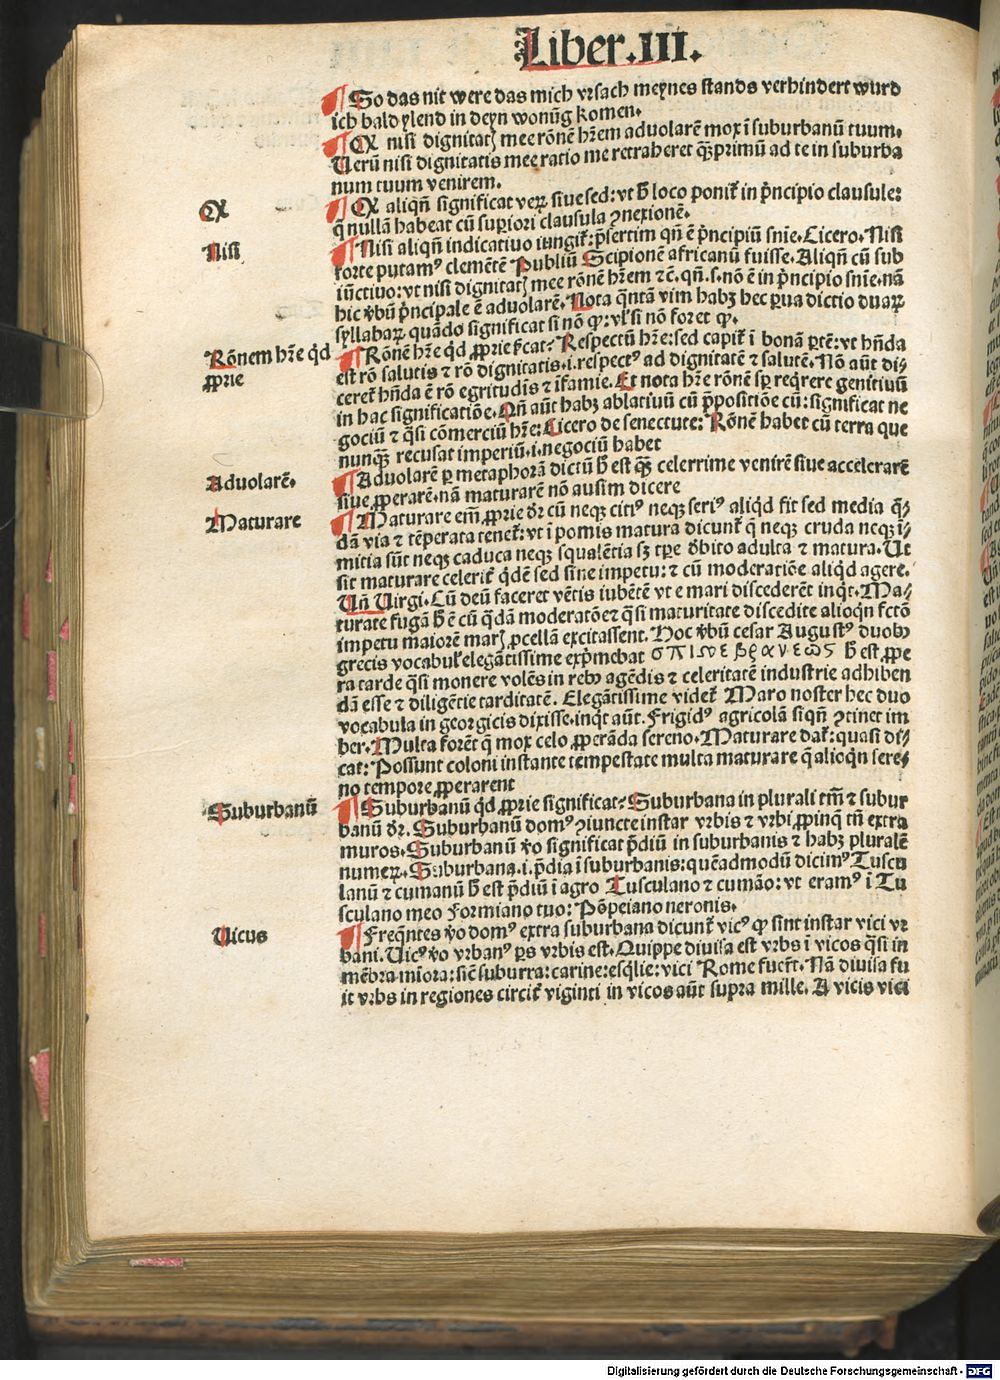 Liber.III.
So das nit were das mich vrsach meynes stands verhindert wurd
ich bald ylend in deyn wonūg komen.
Qꝫ nisi dignitatꝭ mee rōnē hr̄em aduolarē mox ī suburbanū tuum.
Uerū nisi dignitatis mee ratio me retraheret qꝫprimū ad te in suburba
num tuum venirem.
Qꝫ
Qꝫ aliqn̄ significat veꝝ siue sed: vt h̄ loco ponit᷑ in p̄ncipio clausule:
q̄ nullā habeat cū supiori clausula ꝯnexionē.
Nisi
Nisi aliqn̄ indicatiuo iungit᷑: p̄sertim qn̄ ē p̄ncipiū snīe. Cicero. Nisi
forte putamꝰ clemētē Publiū Scipionē africanū fuisse. Aliqn̄ cū sub
iūctiuo: vt nisi dignitatꝭ mee rōnē hr̄em ⁊c̄. qn̄.s.nō ē in p̄ncipio snīe. nā
hic v̄bū p̄ncipale ē aduolarē. Nota q̄ntā vim habꝫ hec ꝑua dictio duaꝝ
syllabaꝝ quādo significat si nō ꝙ: vl̓ si nō foret ꝙ.
Rōnem hr̄e qd̄
ꝓprie
Rōnē hr̄e qd̄ ꝓprie sīcat? Respectū hr̄e: sed capit᷑ ī bonā ꝑtē: vt hn̄da
est rō salutis ⁊ rō dignitatis.i.respectꝰ ad dignitatē ⁊ salutē. Nō aūt di⸗
ceret᷑ hn̄da ē rō egritudis ⁊ īfamie. Et nota hr̄e rōnē sꝑ reqrere genitiuū
in hac significatiōe. Qn̄ aūt habꝫ ablatiuū cū p̄positiōe cū: significat ne
gociū ⁊ q̄si cōmerciū hr̄e: Cicero de senectute: Rōnē habet cū terra que
nunqꝫ recusat imperiū.i.negociū habet
Aduolarē.
Aduolarē ꝑ metaphorā dictū h̄ est qꝫ celerrime venirē siue accelerarē
siue ꝓperarē. nā maturarē nō ausim dicere
Maturare
Maturare em̄ ꝓprie dr̄ cū neqꝫ citiꝰ neqꝫ seriꝰ aliqd̄ fit sed media q̄⸗
dā via ⁊ tēperata tenet᷑: vt ī pomis matura dicunt᷑ q̄ neqꝫ cruda neqꝫ ī⸗
mitia sūt neqꝫ caduca neqꝫ squalētia sꝫ tꝑe d̄bito adulta ⁊ matura. Ut
sit maturare celerit᷑ qd̄ē sed sine impetu: ⁊ cū moderatiōe aliqd̄ agere.
Un̄ Uirgi. Cū deū faceret vētis iubētē vt e mari discederēt inqt. Ma⸗
turate fugā h̄ ē cū q̄dā moderatōe ⁊ q̄si maturitate discedite alioqn̄ fctō
impetu maiorē marꝭ ꝓcellā excitassent. Hoc v̄bū cesar Augustꝰ duobꝫ
grecis vocabul̓ elegātissime exp̄mebat σπινε βραλεωσ h̄ est ꝓpe
ra tarde q̄si monere volēs in rebꝫ agēdis ⁊ celeritatē industrie adhiben
dā esse ⁊ diligētie tarditatē. Elegātissime videt᷑ Maro noster hec duo
vocabula in georgicis dixisse. inqt aūt. Frigidꝰ agricolā siqn̄ ꝯtinet im
ber. Multa forēt q̄ mox celo ꝓperāda sereno. Maturare dat᷑: quasi di⸗
cat: Possunt coloni instante tempestate multa maturare q̄ alioqn̄ sere⸗
no tempore ꝓperarent
Suburbanū
Suburbanū qd̄ ꝓprie significat? Suburbana in plurali tm̄ ⁊ subur
banū dr̄. Suburbanū domꝰ ꝯiuncte instar vrbis ⁊ vrbi ꝓpinq̄ tn̄ extra
muros. Suburbanū v̄o significat p̄diū in suburbanis ⁊ habꝫ pluralē
numeꝝ. Suburbana.i.p̄dia ī suburbanis: quēadmodū dicimꝰ Tuscu
lanū ⁊ cumanū h̄ est p̄diū ī agro Tusculano ⁊ cumāo: vt eramꝰ ī Tu
sculano meo Formiano tuo: Pōpeiano neronis.
Uicus
Freq̄ntes v̄o domꝰ extra suburbana dicunt᷑ vicꝰ ꝙ sint instar vici vr
bani. Uicꝰ v̄o vrbanꝰ ꝑs vrbis est. Quippe diuisa est vrbs ī vicos q̄si in
mēbra miora: sic̄ suburra: carine: esq̄lie: vici Rome fuer̄t. Nā diuisa fu
it vrbs in regiones circit᷑ viginti in vicos aūt supra mille. A vicis vici
Digitalisierung gefördert durch die Deutsche Forschungsgemeinschaft - DFG